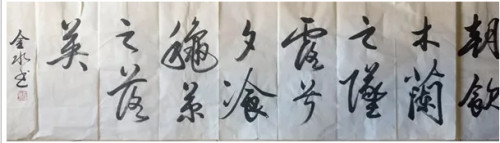 朝飲
木蘭
之墜
露兮
夕飡
龝菊
之落
英
金水书